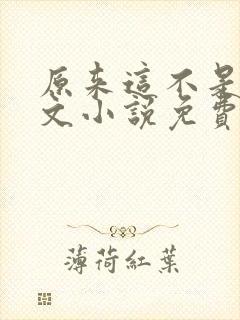 原来這不是
文小說免費
薄荷紅葉